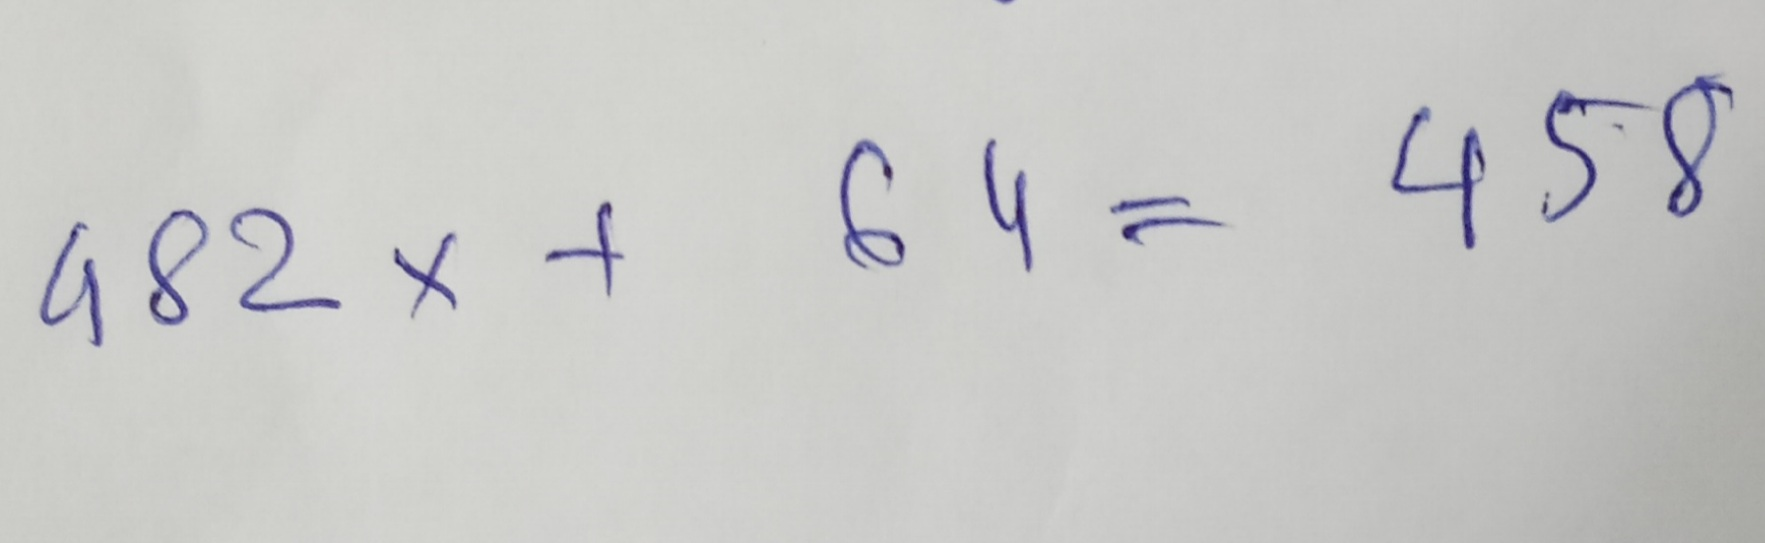 482x + 64 = 458